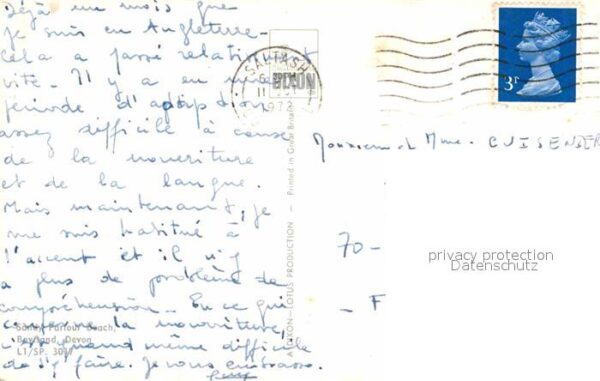 Déjà un mois que
je suis en Angleterre.
cela a passé relativement
vite. Il y a eu une
période d'adaptation
assez difficile à cause
de la nourriture
et de la langue.
Mais maintenant, je
me suis habitué à
l'accent et il n'y
a plus de problème de
compréhension. En ce qui
concerne la nourriture,
c'est quand même difficile
de s'y faire. Je vous embrasse.
Sandy Parlour Beach,
Devon
L1/SP.
A DIXON-LOTUS PRODUCTION - Printed in Great Britain
DIXON
SALTASH
3P
Monsieur et Mme. CUISENIER
70-
- F
privacy protection
Datenschutz